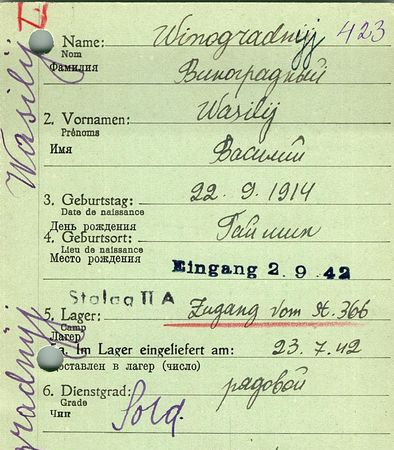 Name: Winogradnyj 423
Nom
Фамилия Виноградный
2. Vornamen: Wasilij
Prénoms
Имя Василий
3. Geburtstag: 22. 9. 1914
Date de naissance
День рождения
4. Geburtsort:
Lieu de naissance
Место рождения
Eingang 2. 9. 42
Stalag II A
5. Lager: Zugang vom St. 366
Camp
Лагерь
Im Lager eingeliefert am: 23. 7. 42
Доставлен в лагер (число)
6. Dienstgrad: рядовой
Grade
Чин Sold.
Wasilij